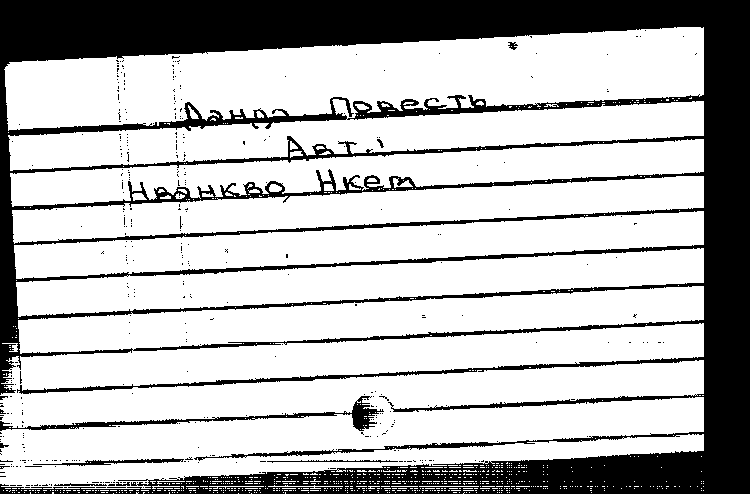 Данда Повесть
Авт.:
Нванкво, Нкем